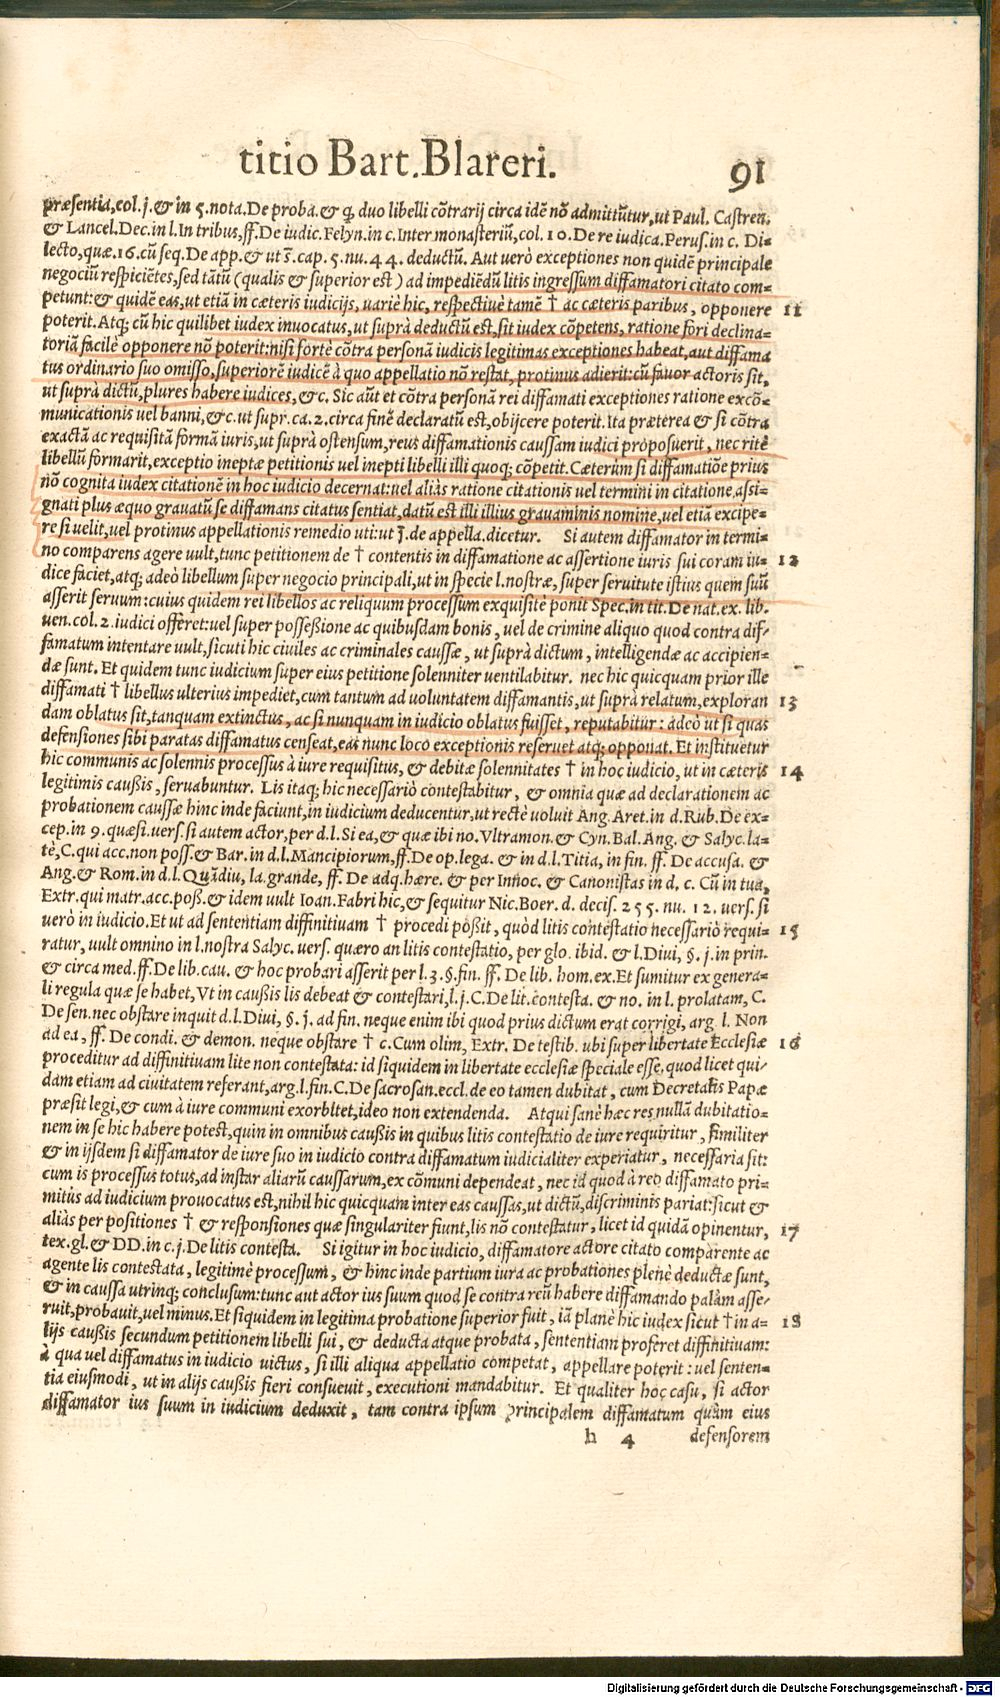 titio Bart. Blareri. 91
præsentia, col. j. & in 5. nota. De proba. & q̃ duo libelli cõtrarij circa idẽ nõ admittũtur, ut Paul. Castren.
& Lancel. Dec. in l. In tribus, ff. De iudic. Felyn. in c. Inter monasteriũ, col. 10. De re iudica. Perus. in c. Di-
lecto, quæ. 16. cũ seq. De app. & ut s̃. cap. 5. nu. 44. deductũ. Aut uerò exceptiones non quidẽ principale
negociũ respiciẽtes, sed tãtũ (qualis & superior est) ad impediẽdũ litis ingressum diffamatori citato com-
petunt: & quidẽ eas, ut etiã in cæteris iudicijs, uariè hic, respectiuè tamẽ † ac cæteris paribus, opponere 11
poterit. Atq; cũ hic quilibet iudex inuocatus, ut suprà deductũ est, sit iudex cõpetens, ratione fori declina-
toriã facilè opponere nõ poterit: nisi fortè cõtra personã iudicis legitimas exceptiones habeat, aut diffama
tus ordinario suo omisso, superiorẽ iudicẽ à quo appellatio nõ restat, protinus adierit: cũ fauor actoris sit,
ut suprà dictũ, plures habere iudices, &c. Sic aũt et cõtra personã rei diffamati exceptiones ratione excõ-
municationis uel banni, &c. ut supr. ca. 2. circa finẽ declaratũ est, obijcere poterit. Ita præterea & si cõtra
exactã ac requisitã formã iuris, ut suprà ostensum, reus diffamationis caussam iudici proposuerit, nec ritè
libellũ formarit, exceptio ineptæ petitionis uel inepti libelli illi quoq; cõpetit. Cæterùm si diffamatiõe prius
nõ cognita iudex citationẽ in hoc iudicio decernat: uel aliàs ratione citationis uel termini in citatione, assi-
gnati plus æquo grauatũ se diffamans citatus sentiat, datũ est illi illius grauaminis nomine, uel etiã excipe-
re si uelit, uel protinus appellationis remedio uti: ut J. de appella. dicetur. Si autem diffamator in termi-
no comparens agere uult, tunc petitionem de † contentis in diffamatione ac assertione iuris sui coram iu- 12
dice faciet, atq; adeò libellum super negocio principali, ut in specie l. nostræ, super seruitute istius quem suũ
asserit seruum: cuius quidem rei libellos ac reliquum processum exquisitè ponit Spec. in tit. De nat. ex. lib.
uen. col. 2. iudici offeret: uel super possessione ac quibusdam bonis, uel de crimine aliquo quod contra dif-
famatum intentare uult, sicuti hic ciuiles ac criminales caussæ, ut suprà dictum, intelligendæ ac accipien-
dæ sunt. Et quidem tunc iudicium super eius petitione solenniter uentilabitur. nec hic quicquam prior ille
diffamati † libellus ulterius impediet, cum tantum ad uoluntatem diffamantis, ut suprà relatum, exploran 13
dam oblatus sit, tanquam extinctus, ac si nunquam in iudicio oblatus fuisset, reputabitur: adeò ut si quas
defensiones sibi paratas diffamatus censeat, eas nunc loco exceptionis reseruet atq; opponat. Et instituetur
hic communis ac solennis processus à iure requisitus, & debitæ solennitates † in hoc iudicio, ut in cæteris 14
legitimis caußis, seruabuntur. Lis itaq; hic necessariò contestabitur, & omnia quæ ad declarationem ac
probationem caussæ hinc inde faciunt, in iudicium deducentur, ut rectè uoluit Ang. Aret. in d. Rub. De ex-
cep. in 9. quæsi. uers. si autem actor, per d. l. Si ea, & quæ ibi no. Vltramon. & Cyn. Bal. Ang. & Salyc. la-
tè, C. qui acc. non poss. & Bar. in d. l. Mancipiorum, ff. De op. lega. & in d. l. Titia, in fin. ff. De accusa. &
Ang. & Rom. in d. l. Quãdiu, la grande, ff. De adq. hære. & per Innoc. & Canonistas in d. c. Cũ in tua,
Extr. qui matr. acc. poß. & idem uult Ioan. Fabri hic, & sequitur Nic. Boer. d. decis. 255. nu. 12. uers. si
uerò in iudicio. Et ut ad sententiam diffinitiuam † procedi poßit, quòd litis contestatio necessariò requi- 15
ratur, uult omnino in l. nostra Salyc. uers. quæro an litis contestatio, per glo. ibid. & l. Diui, §. j. in prin.
& circa med. ff. De lib. cau. & hoc probari asserit per l. 3. §. fin. ff. De lib. hom. ex. Et sumitur ex genera-
li regula quæ se habet, Vt in caußis lis debeat & contestari, l. j. C. De lit. contesta. & no. in l. prolatam, C.
De sen. nec obstare inquit d. l. Diui, §. j. ad fin. neque enim ibi quod prius dictum erat corrigi, arg. l. Non
ad ea, ff. De condi. & demon. neque obstare † c. Cum olim, Extr. De testib. ubi super libertate Ecclesiæ 16
proceditur ad diffinitiuam lite non contestata: id siquidem in libertate ecclesiæ speciale esse, quod licet qui-
dam etiam ad ciuitatem referant, arg. l. fin. C. De sacrosan. eccl. de eo tamen dubitat, cum Decretalis Papæ
præsit legi, & cum à iure communi exorbitet, ideo non extendenda. Atqui sanè hæc res nullã dubitatio-
nem in se hic habere potest, quin in omnibus caußis in quibus litis contestatio de iure requiritur, similiter
& in ijsdem si diffamator de iure suo in iudicio contra diffamatum iudicialiter experiatur, necessaria sit:
cum is processus totus, ad instar aliarũ caussarum, ex cõmuni dependeat, nec id quod à reo diffamato pri-
mitùs ad iudicium prouocatus est, nihil hic quicquam inter eas caussas, ut dictũ, discriminis pariat: sicut &
aliàs per positiones † & responsiones quæ singulariter fiunt, lis nõ contestatur, licet id quidã opinentur, 17
tex. gl. & DD. in c. j. De litis contesta. Si igitur in hoc iudicio, diffamatore actore citato comparente ac
agente lis contestata, legitimè processum, & hinc inde partium iura ac probationes plenè deductæ sunt,
& in caussa utrinq; conclusum: tunc aut actor ius suum quod se contra reũ habere diffamando palàm asse-
ruit, probauit, uel minus. Et siquidem in legitima probatione superior fuit, iã planè hic iudex sicut † in a- 18
lijs caußis secundum petitionem libelli sui, & deducta atque probata, sententiam proferet diffinitiuam:
à qua uel diffamatus in iudicio uictus, si illi aliqua appellatio competat, appellare poterit: uel senten-
tia eiusmodi, ut in alijs caußis fieri consueuit, executioni mandabitur. Et qualiter hoc casu, si actor
diffamator ius suum in iudicium deduxit, tam contra ipsum principalem diffamatum quàm eius
h 4 defensorem
Digitalisierung gefördert durch die Deutsche Forschungsgemeinschaft - DFG